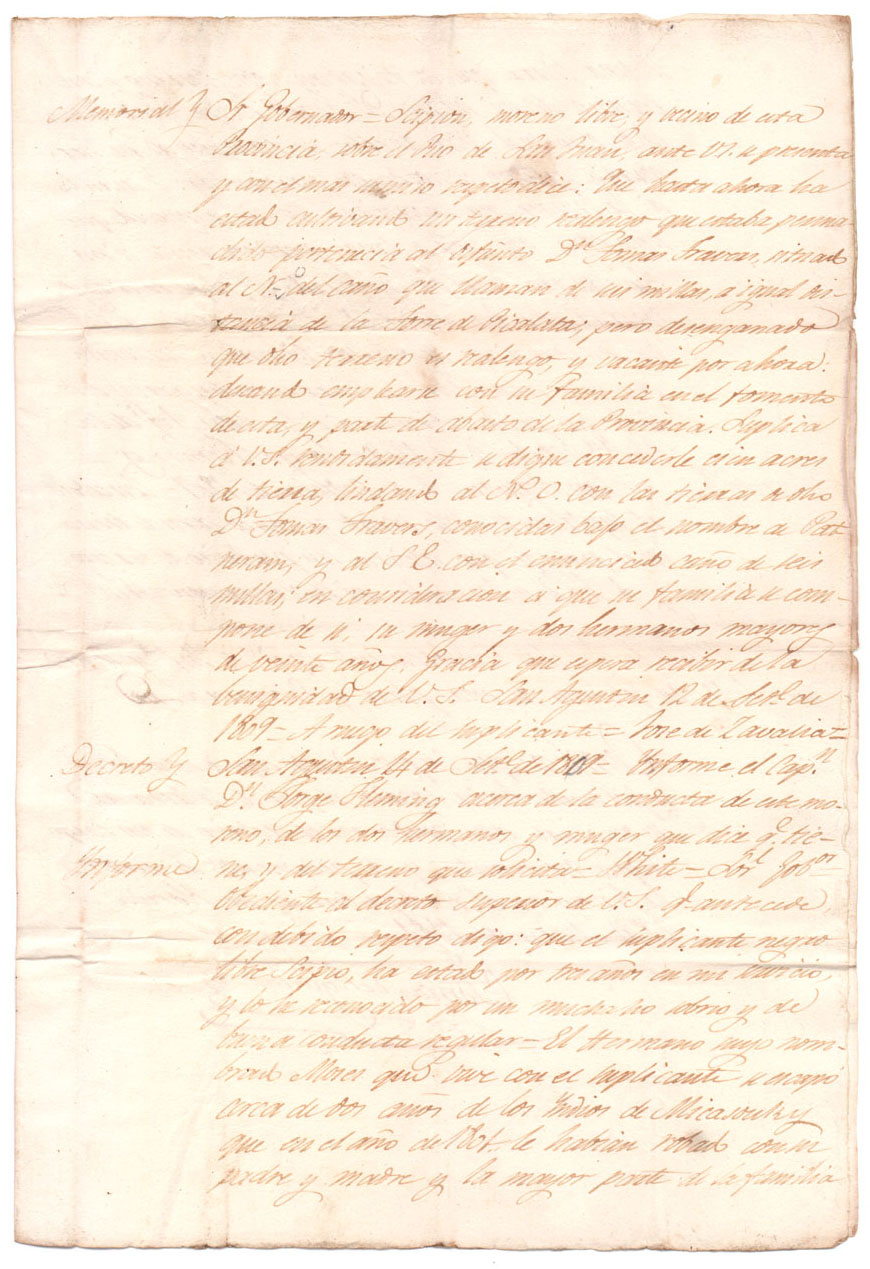 Memorial } Sr Gobernador = Scipion, moreno libre, y vecino de esta
Provincia, sobre el Rio de San Juan, ante VS. se presenta
y con el mas respeto dice: Que hasta ahora ha
estado cultivando un terreno realengo que estaba persua-
dido pertenecia al difunto Dn. Tomas Travers, situado
al N. O. del caño que llaman de seis millas, a igual dis-
tancia de la Torre de Picolata; pero desenganado
que dho terreno es realengo, y vacante por ahora:
deseando emplearse con su familia en el fomento
de esta, y parte de abasto de la Provincia. Suplica
á V.S. rendidamente se digne concederle cien acres
de tierra, lindando al N. O. con las tierras de dho
Dn. Tomas Travers, conocidas bajo el nombre de
y al S E. con el enunciado caño de seis
millas; en consideracion á que su familia se com-
pone de si, su muger y dos hermanos mayores
de veinte años. Gracia que espera recibir de la
benignidad de V. S. San Agustin 12 de Sete. de
1809 = A ruego del suplicante = Jose de Zavala =
Decreto } San Agustin 14 de Sete. de 1809 = Informe el Capn.
Dn. Jorge Fleming acerca de la conducta de este mo-
reno, de los dos hermanos y muger que dice q. tie-
Informe ne, y del terreno que solicita = White = Sor. Gobor.
Obediente al decreto superior de V. S. q. antecede
con debido respeto digo: que el suplicante negro
libre Scipio, ha estado por tres años en mi servicio,
y lo he reconocido por un muchacho sobrio y de
buena conducta regular = El Hermano suyo nom-
brado Moses que vive con el suplicante se escapó
cerca de dos años de los Indios de Micasouky
que en el año de 1801. le habian robado con su
padre y madre y la mayor parte de la familia